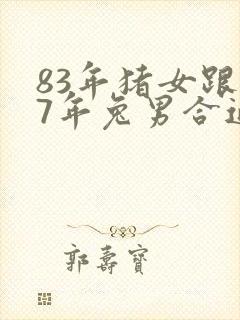 83年猪女跟
7年兔男合适
郭寿宝